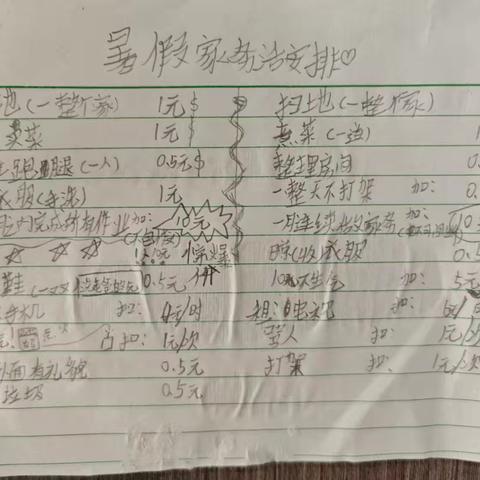 暑假家务活安排♡
地(一整个家) 1元$ 扫地(一整个家)
卖菜 1元$ 煮菜(一道)
腿(一人) 0.5元$ 整理房间 0.
衣服(手洗) 1元 一整天不打架 加: 0.
内完成所有作业 加: 10元 一月连续做家务 加: 10
惊爆 晾(收)衣服 0.5
鞋(一双) 0.5元 10天不生气 加: 5元
手机 扣: 4元/时 租:电视 扣:
扣: 1元/次 骂人 扣: 1元/次
外面有礼貌 0.5元 打架 扣: 1元/次
垃圾 0.5元